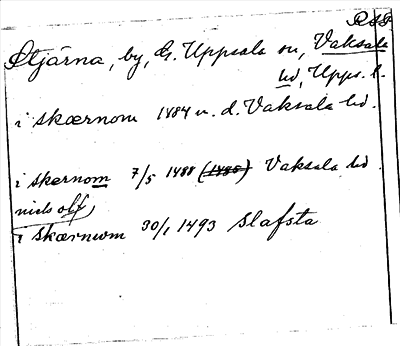 RSS
Stjärna, by, G. Uppsala sn, Vaksala
hd, Upps. l.
i skærnom 1484 u. d. Vaksala hd.
i skernom 7/5 1488 (1486) Vaksala hd
niels olf,
i skærnom 30/1 1493 Slafsta